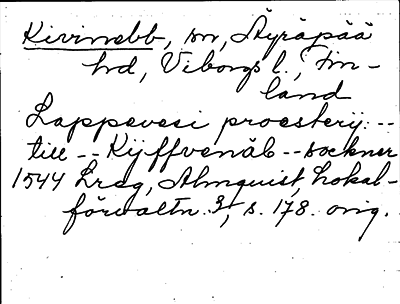 Kivinebb, sn, Äyräpää
hd, Viborgs l., Fin-
land
Lappevesi proesterij --
till -- Kijffvenäb -- sockner
1544 Lreg, Almquist, Lokal-
förvaltn. 3, s. 178. orig.